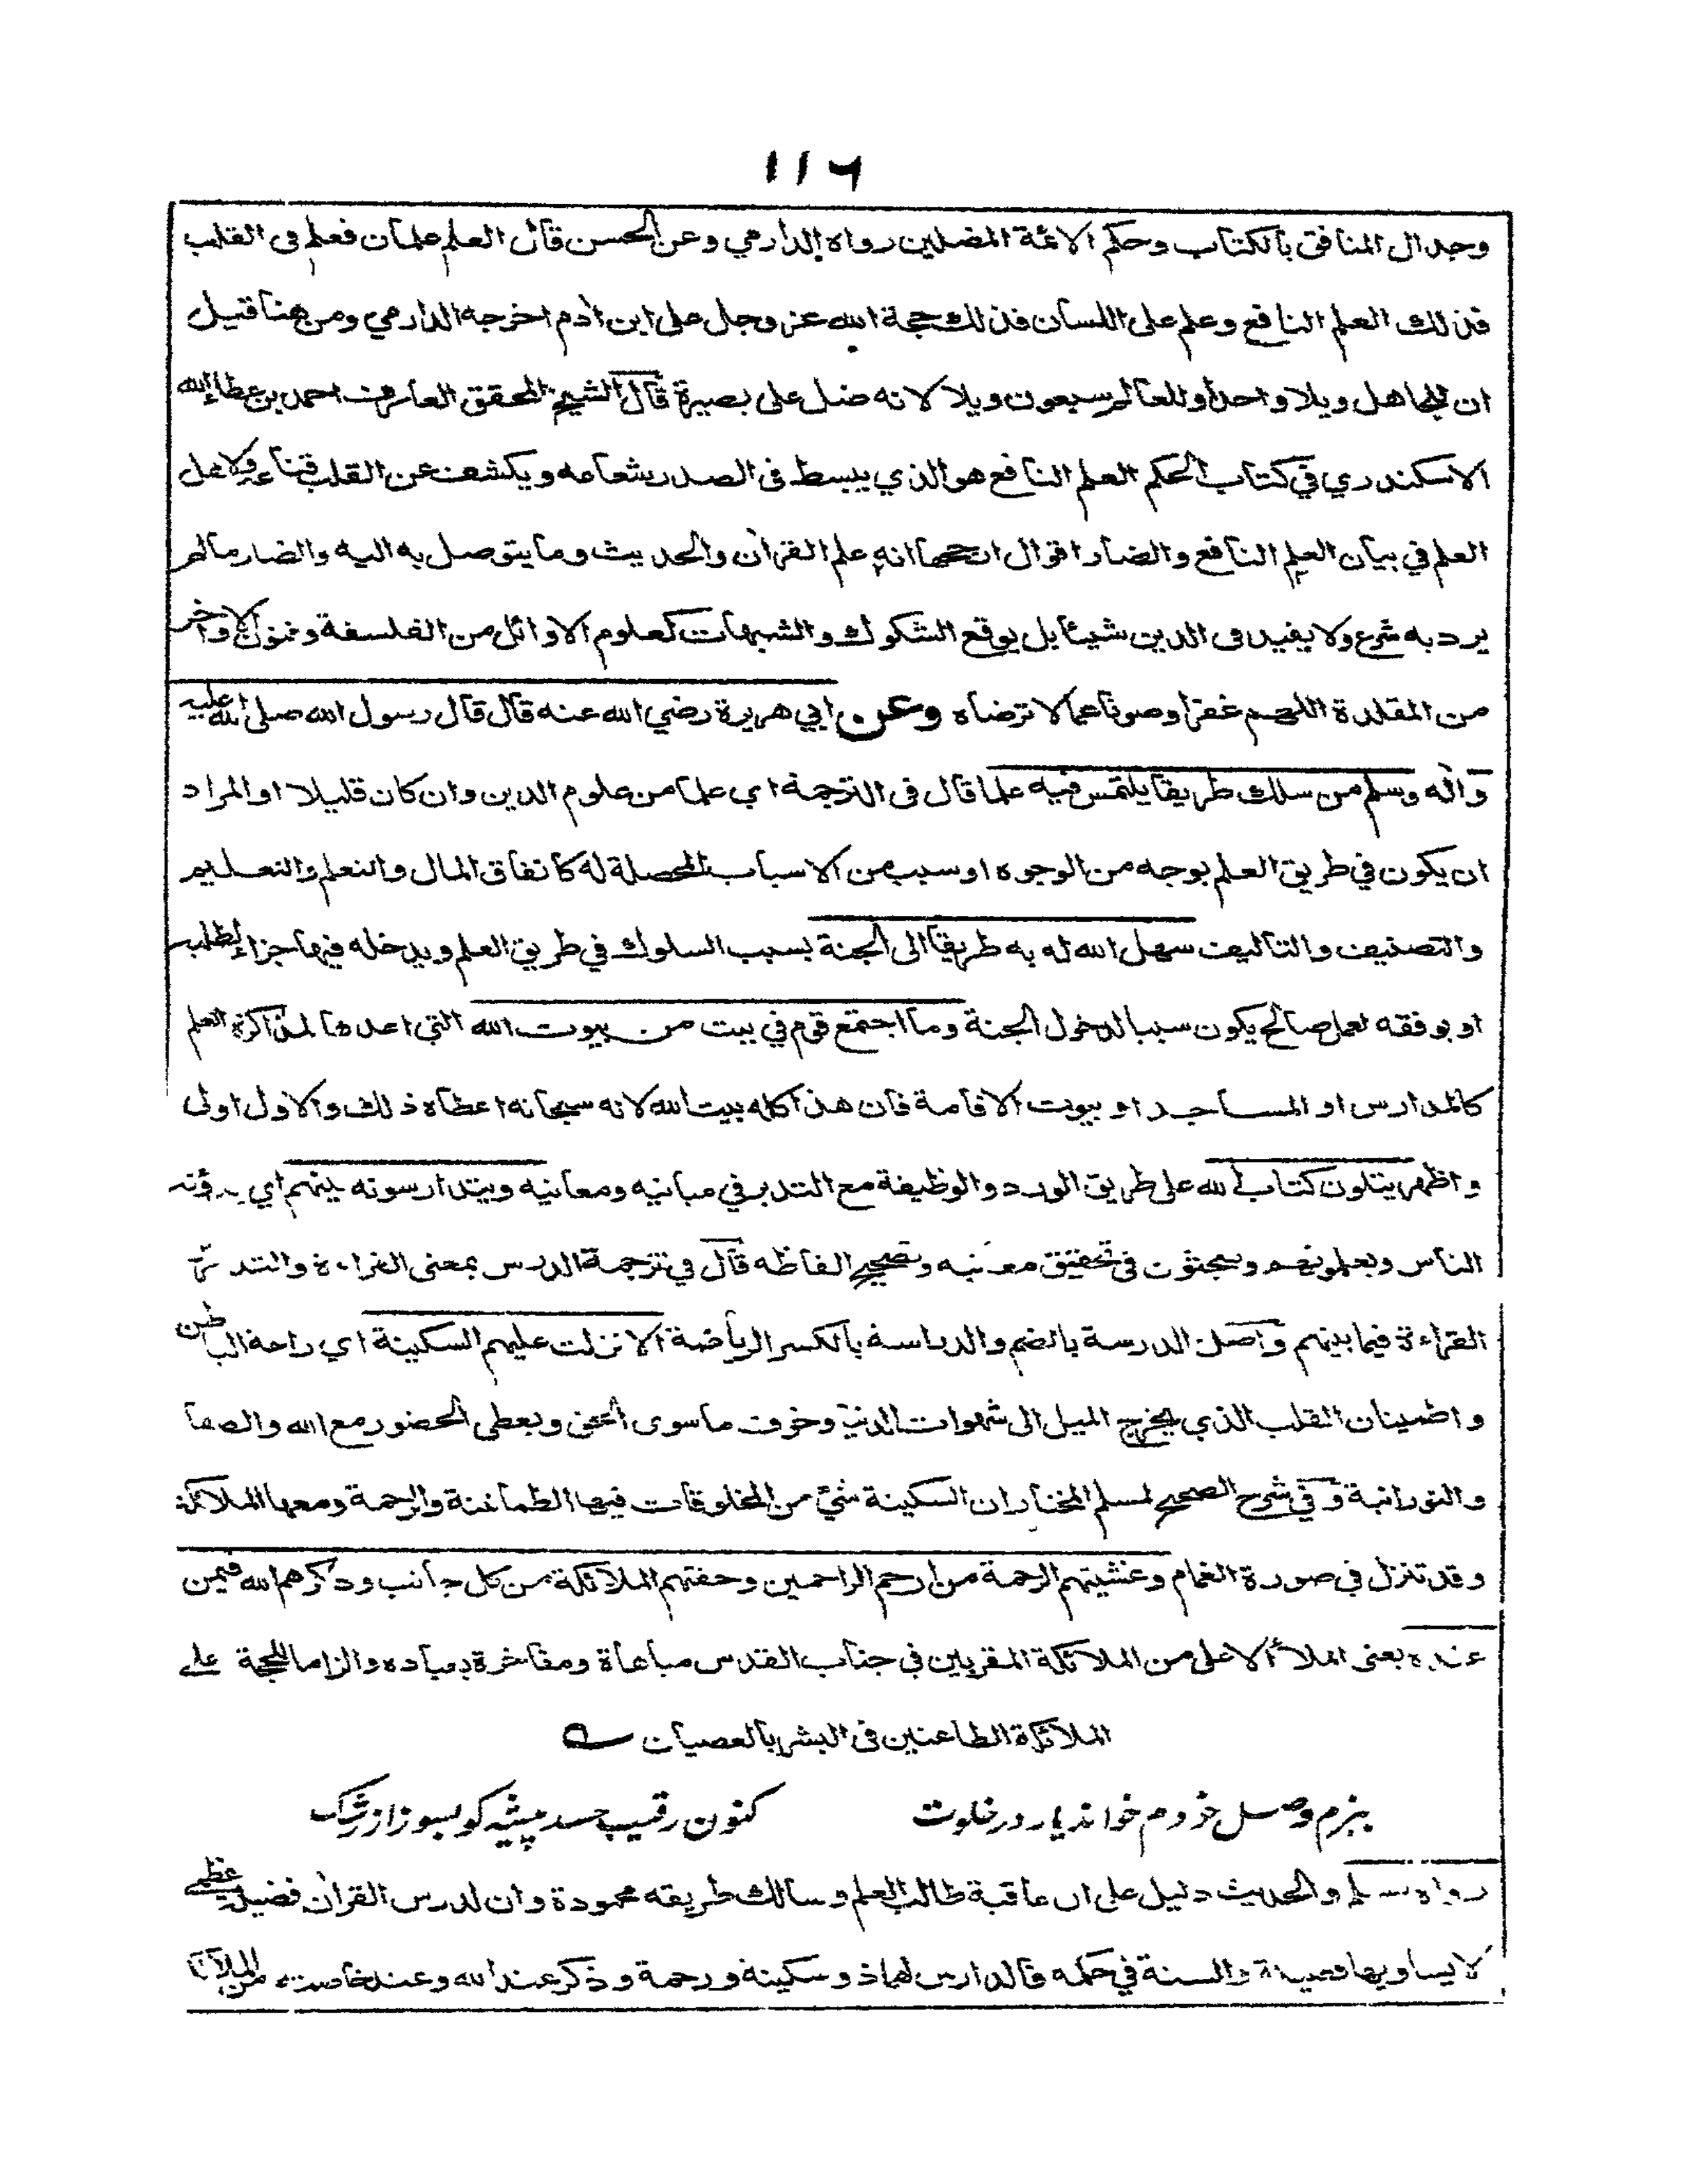 ١١٦
وجدال المنافق بالكتاب وحكم الائمة المضلين رواه الدارمي وعن الحسن قال العلم علمان فعلم فى القلب
فذلك العلم النافع وعلم على اللسان فذلك حجة الله عز وجل على ابن أدم اخرجه الدارمي ومن هنا قيل
ان للجاهل ويلا واحدا وللعالم سبعون ويلا لانه ضل على بصيرة قال الشيخ المحقق العارف احمد بن عطاء الله
الاسكندري في كتاب الحكم العلم النافع هو الذي يبسط فى الصدر شعاعه ويكشف عن القلب قناعه ولاهل
العلم في بيان العلم النافع والضار اقوال ارجحها انه علم القرأن والحديث وما يتوصل به اليه والضار ما لم
يرد به شرع ولا يفيد فى الدين شيئا بل يوقع الشكوك والشبهات كعلوم الاوائل من الفلسفة وفنون الاواخر
من المقلدة اللهم غفرا وصونا عما لا ترضاه وعن ابي هريرة رضي الله عنه قال قال رسول الله صلى الله عليه
وأله وسلم من سلك طريقا يلتمس فيه علما قال فى الترجمة اي علما من علوم الدين وان كان قليلا او المراد
ان يكون في طريق العلم بوجه من الوجوه او سبب من الاسباب المحصلة له كانفاق المال والتعلم والتعليم
والتصنيف والتاليف سهل الله له به طريقا الى الجنة بسبب السلوك في طريق العلم ويدخله فيها جزاء لطلبه
او يوفقه لعمل صالح يكون سببا لدخول الجنة وما اجتمع قوم في بيت من بيوت الله التي اعدها لمذاكرة العلم
كالمدارس او المساجد او بيوت الاقامة فان هذا كله بيت الله لانه سبحانه اعطاه ذلك والاول اولى
واظهر يتلون كتاب الله على طريق الورد والوظيفة مع التدبر في مبانيه ومعانيه ويتدارسونه بينهم اي
الناس ويعلمونهم ويبحثون فى تحقيق معانيه وتصحيح الفاظه قال في ترجمة الدرس بمعنى القراءة والتدارس
القراءة فيما بينهم واصل الدرسة بالضم والدراسة بالكسر الرياضة الا نزلت عليهم السكينة اي راحة الباطن
واطمينان القلب الذي يخرج الميل الى شهوات الدنيا وخوف ما سوى الحق ويعطى الحضور مع الله والصفا
والنورانية وفي شرح الصحيح لمسلم المختار ان السكينة شيء من المخلوقات فيها الطمأنينة والرحمة ومعها الملائكة
وقد تنزل في صورة الغمام وغشيتهم الرحمة من ارحم الراحمين وحفتهم الملائكة من كل جانب وذكرهم الله فيمن
عنده يعنى الملأ الاعلى من الملائكة المقربين في جناب القدس مباهاة ومفاخرة بعباده والزاما للحجة على
الملائكة الطاعنين فى البشر بالعصيان
ببزم وصل خودم خواند يار در خلوت كنون رقيب حسد پيشه كو بسوز از رشك
رواه مسلم والحديث دليل على ان عاقبة طالب العلم وسالك طريقه محمودة وان لدرس القرأن فضيلة عظمى
لا يساويها فضيلة والسنة في حكمه فالدارس لهما ذو سكينة ورحمة وذكر عند الله وعند خاصته من الملائكة